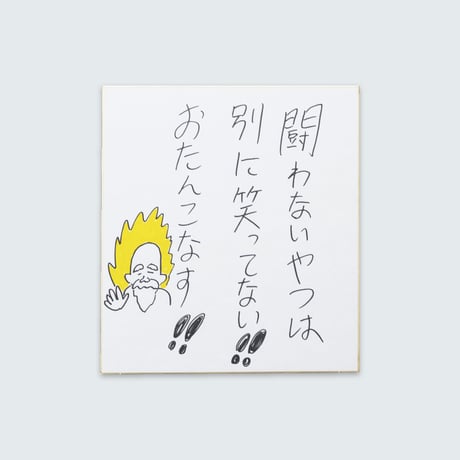 闘わないやつは
別に笑ってない!!
おたんこなす!!